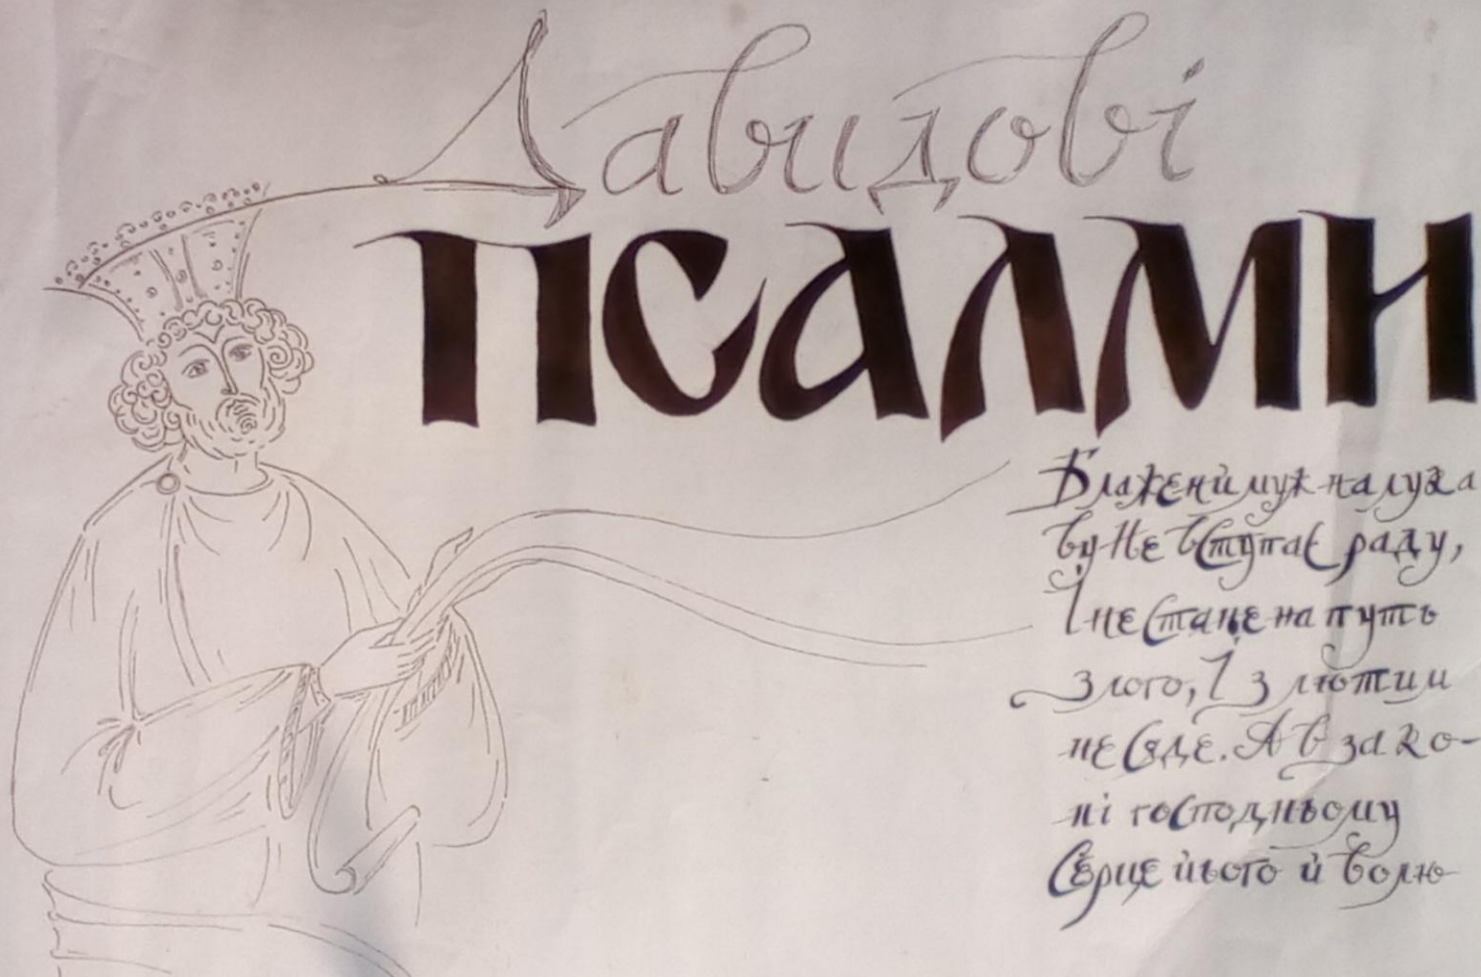 Давидові
ПСАЛМИ
Блажений муж на лука
ву не вступає раду,
І не стане на путь
злого, І з лютим
не сяде. А в зако-
ні господньому
Серце його й волю